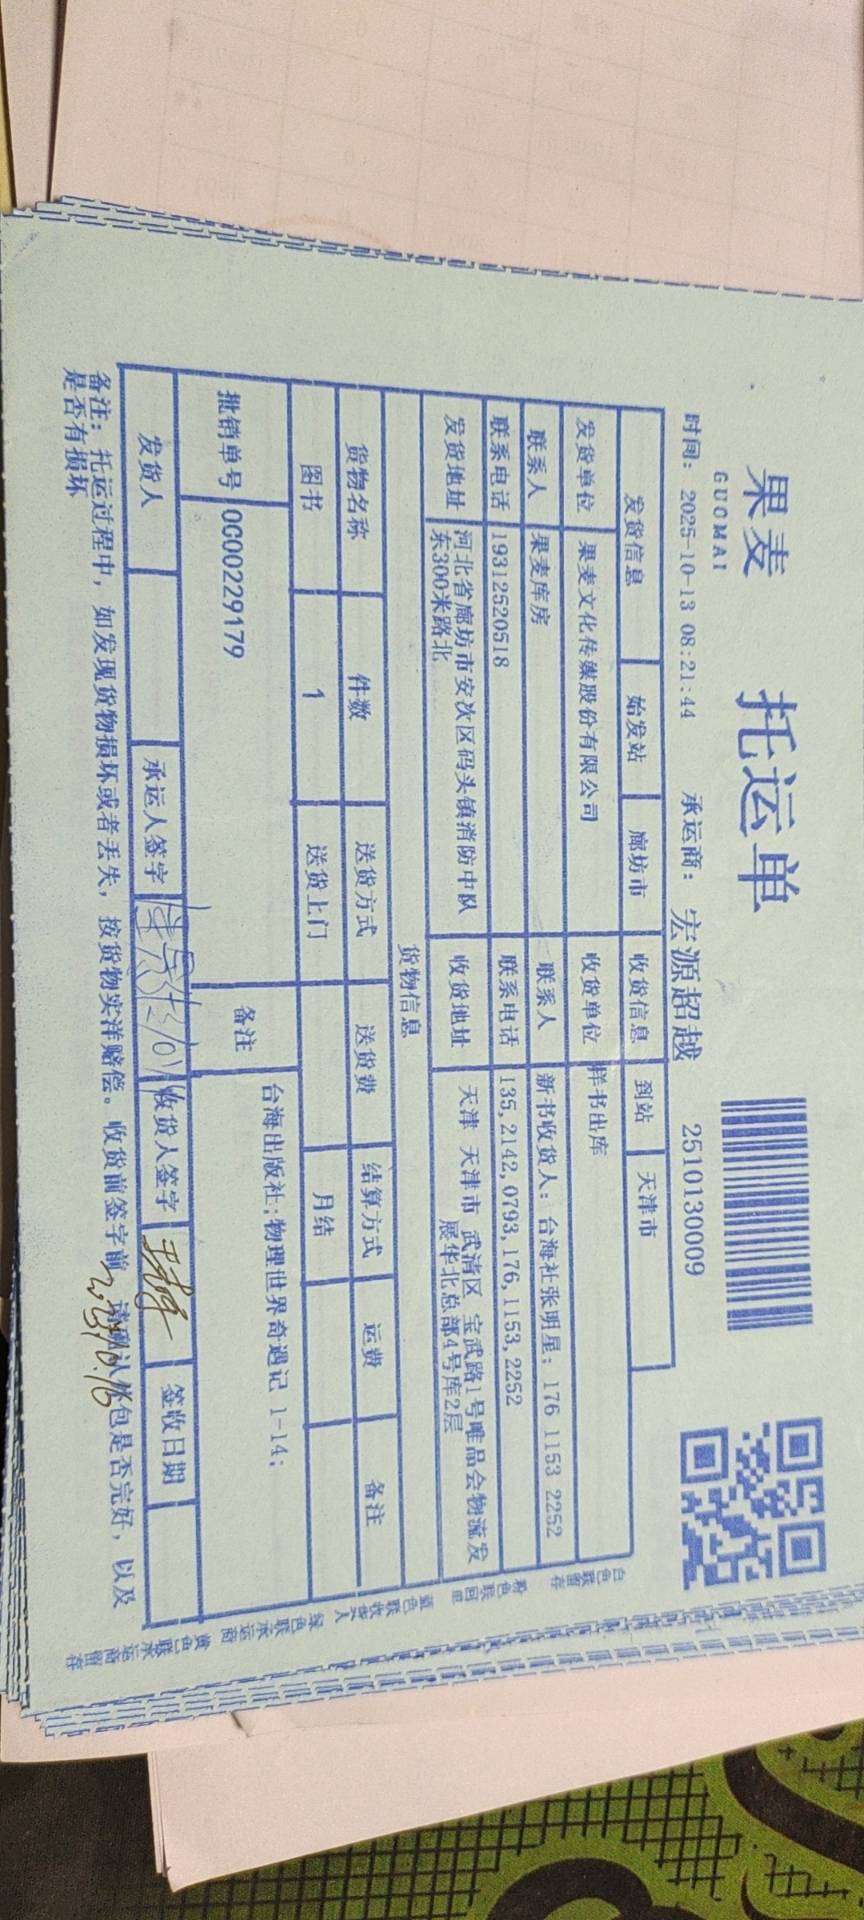 果麦
GUOMAI
托运单
时间: 2025-10-13 08:21:44 承运商: 宏源超越 2510130009
发货信息 始发站 廊坊市 收货信息 到站 天津市
发货单位 果麦文化传媒股份有限公司 收货单位 样书出库
联系人 果麦库房 联系人 新书收货人: 台海社张明星: 176 1153 2252
联系电话 19312520518 联系电话 135,2142,0793,176,1153,2252
发货地址 河北省廊坊市安次区码头镇消防中队
东300米路北
收货地址 天津 天津市 武清区 宝武路1号唯品会物流发
展华北总部4号库2层
货物信息
货物名称 件数 送货方式 送货费 结算方式 运费 备注
图书 1 送货上门 月结
批销单号 0G00229179 备注 台海出版社:物理世界奇遇记 1-14;
发货人 承运人签字 收货人签字 签收日期
备注: 托运过程中, 如发现货物损坏或者丢失, 按货物实洋赔偿。收货前签字前, 请确认外包是否完好, 以及
是否有损坏
白色联留存 粉色联回单 蓝色联收货人 绿色联承运商 黄色联承运商留存